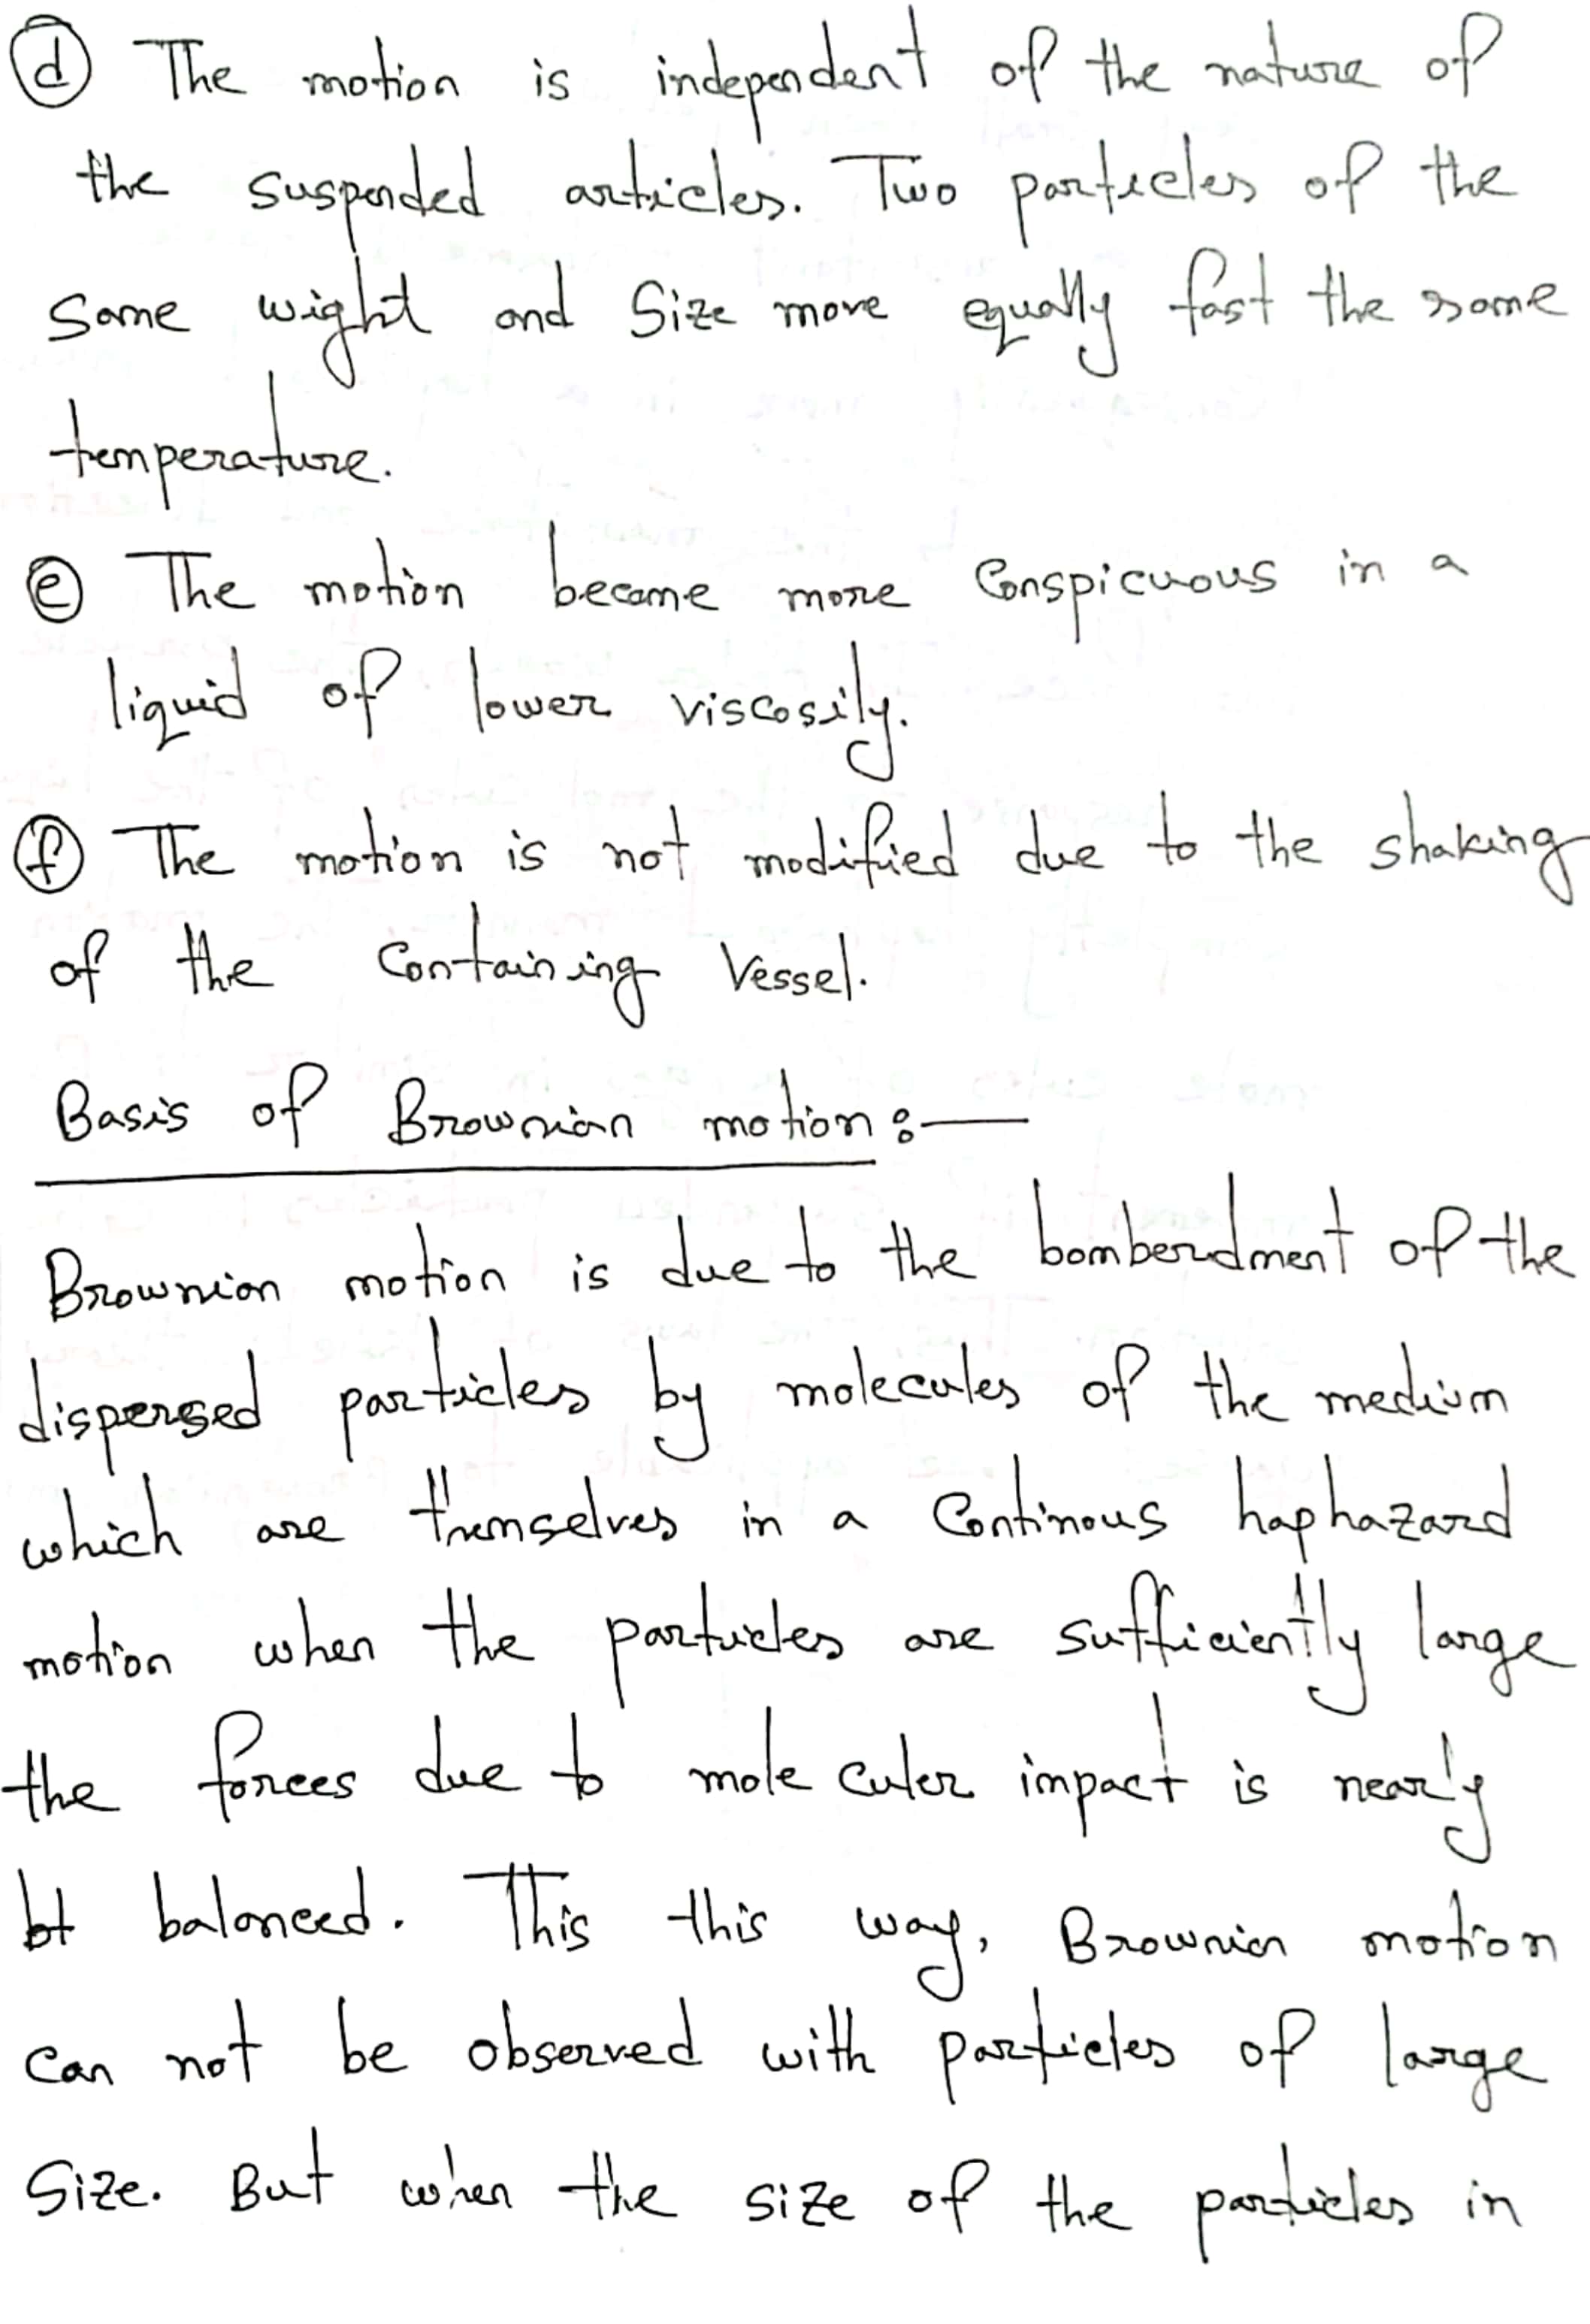 ⓓ The motion is independent of the nature of
the suspended articles. Two particles of the
same wight and Size move equally fast the same
temperature.
ⓔ The motion become more Conspicuous in a
liquid of lower viscosily.
ⓕ The motion is not modified due to the shaking
of the Containing Vessel.
Basis of Brownian motion :—
Brownian motion is due to the bomberdment of the
dispersed particles by molecules of the medium
which are themselves in a Continous haphazard
motion when the particles are sufficiently large
the forces due to mole culer impact is nearly
bt balanced. This this way, Brownian motion
can not be observed with particles of large
Size. But when the size of the particles in